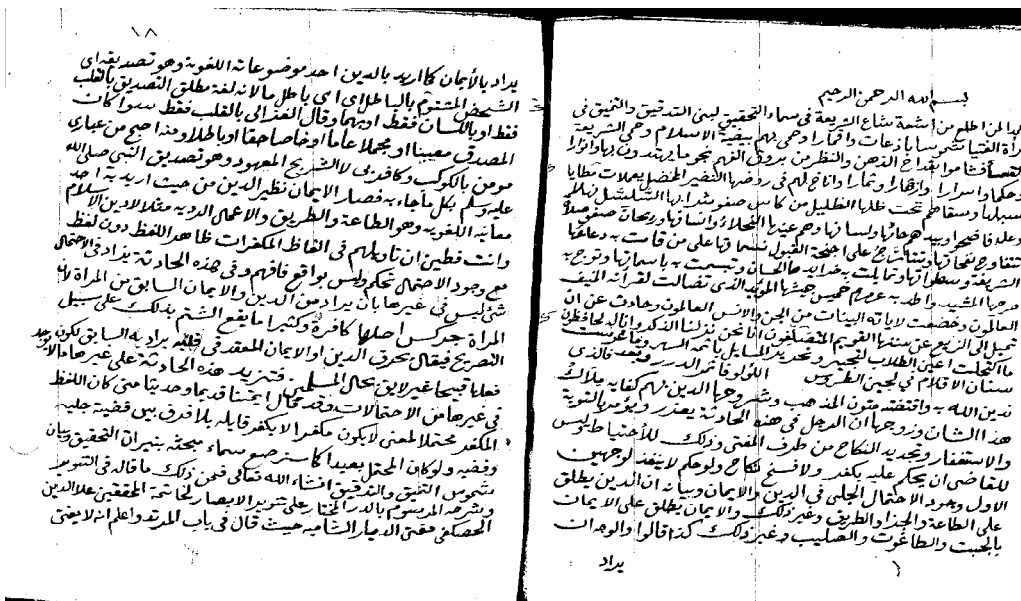 بسم الله الرحمن الرحيم
من اطلع من أشعة شعاع الشريعة في سماء التحقيق لبنى التدقيق والتنميق في
الفتيا شموسا بازغات واقمارا وحمى بهم بيضة الاسلام وحمى الشريعة
بقداح الذهن والنظر من بروق الفهم نجوما يهتدون بها وانوارا
وحكما واسرارا وازهارا وثمارا واتاح لهم في روضها النضير الخضل يعملات مطايا
سبلها وسقاهم تحت ظلها الظليل من كاس صفو شرابها السلسل
الشريعة وتمايلت به
مرحها المشيد واطد به عرمرم خميس جيشها المؤيد الذى تضالت لقرآنه المنيف
العالمون وخضعت لاياته البينات من الجن والانس العالمون وحادت عن ان
تميل الى الزيغ عن سننها القويم المتصلفون انا نحن نزلنا الذكر وانا له لحافظون
ما اكتحلت اعين الطلاب لتحبير وتحديد المسايل باثمد السهر وما غرست
سنان الاقلام في لجين الطروس اللؤلؤ فاثمر الدرر وبعد فالذى
ندين الله به واقتفته متون المذهب وشروحها الذين بهم كفاية ملاك
هذا الشان وزوجها ان الرجل في هذه الحادثة يعزر ويؤمر بالتوبة
والاستغفار وتجديد النكاح من طرف المفتى وذلك للأحتياط وليس
للقاضى ان يحكم عليه بكفر ولا فسخ نكاح ولو حكم لا ينفذ لوجهين
الاول وجود الاحتمال الجلى في الدين والايمان وبيانه ان الدين يطلق
على الطاعة والجزا والطريق وغير ذلك والايمان يطلق على الايمان
بالجبت والطاغوت والصليب وغير ذلك كذا قالوا والوجه ان
يراد
١٨
يراد بالأيمان كما اريد بالدين احد موضوعاته اللغوية وهو تصديقه اى
الشخص المشتوم بالباطل اى اى باطل ما لانه لغة مطلق التصديق بالقلب
فقط او باللسان فقط او بهما وقال الغزالى بالقلب فقط سوا كان
المصدق معينا او مجملا عاما او خاصا حقا او باطلا ومنه اصبح من عبادى
مومن بالكوكب وكافر بى لا التشريع المعهود وهو تصديق النبى صلى الله
عليه وسلم بكل ما جاء به فصار الايمان نظير الدين من حيث اريد به احد
معانيه اللغويه وهو الطاعة والطريق والاعمال الرديه مثلا لا دين الاسلام
وانت فطين ان تاويلهم في الفاظ المكفرات ظاهر اللفظ دون لفظ
مع وجود الاحتمال تحكم وليس بواقع فافهم وفى هذه الحادثة يزاد في الاحتمال
شئ ليس في غيرها بان يراد من الدين والايمان السابق من المراة لان
المراة جركس اصلها كافرة وكثيرا ما يقع الشتم بذلك على سبيل
التصريح فيقال يحرق الدين او الايمان المعقد في قلبه يراد به السابق لكون
فعلها قبيحا غير لايق بحال المسلمين فتزيد هذه الحادثة على غيرها مالا يوجد
في غيرها من الاحتمالات وقد قال ايمتنا قديما وحديثا متى كان اللفظ
المكفر محتملا لمعنى لا يكون مكفرا لا يكفر قايله بلا فرق بين قضية جلية
وخفيه ولو كان المحتمل بعيدا كما سنرصع سماء مبحثه بنيران التحقيق وبيان
شموس التنميق والتدقيق انشاء الله تعالى فمن ذلك ما قاله في التنوير
وشرحه المرسوم بالدر المختار على تنوير الابصار لخاتمة المحققين علا الدين
الحصكفى مفتى الديار الشامية حيث قال في باب المرتد واعلم انه لا يفتى